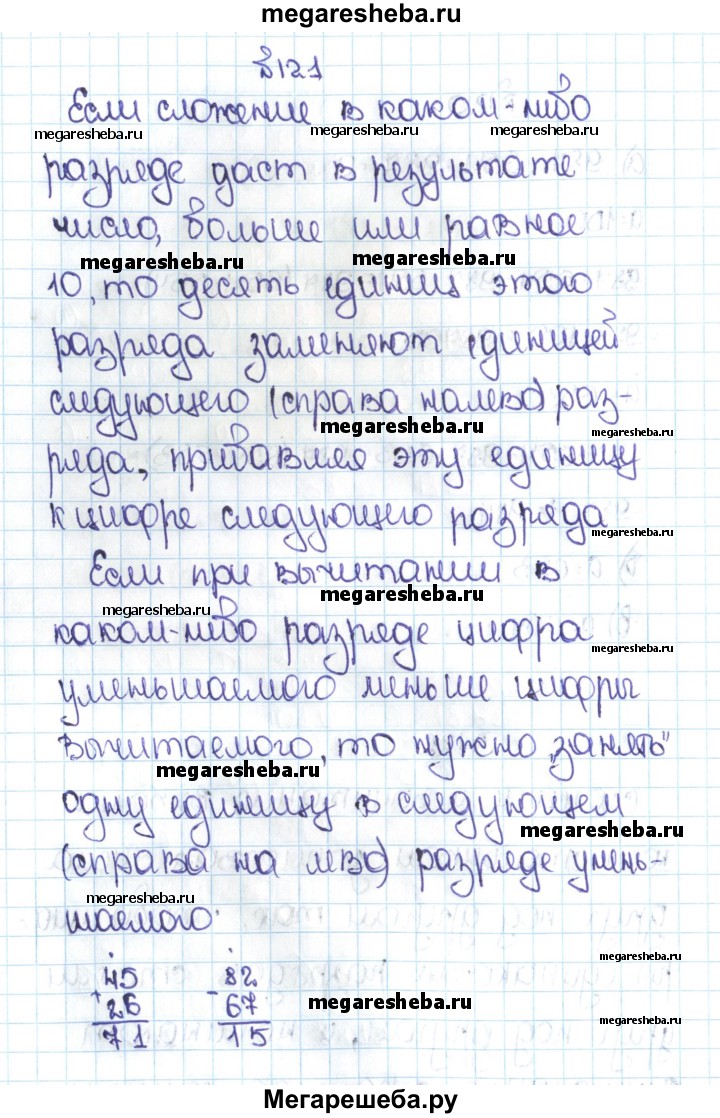 megaresheba.ru
№121
Если сложение в каком-либо
megaresheba.ru megaresheba.ru megaresheba.ru
разряде даст в результате
число, больше или равное
megaresheba.ru megaresheba.ru
10, то десять единиц этого
разряда заменяют единицей
следующего (справа налево) раз-
megaresheba.ru megaresheba.ru
ряда, прибавляя эту единицу
к цифре следующего разряда
megaresheba.ru
Если при вычитании в
megaresheba.ru megaresheba.ru
каком-либо разряде цифра
megaresheba.ru
уменьшаемого меньше цифры
вычитаемого, то нужно „занять"
megaresheba.ru
одну единицу в следующем
megaresheba.ru
(справа на лево) разряде умень-
megaresheba.ru
шаемого.
megaresheba.ru
45 82
+ 26 - 67
megaresheba.ru
megaresheba.ru
71 15
Мегарешеба.ру